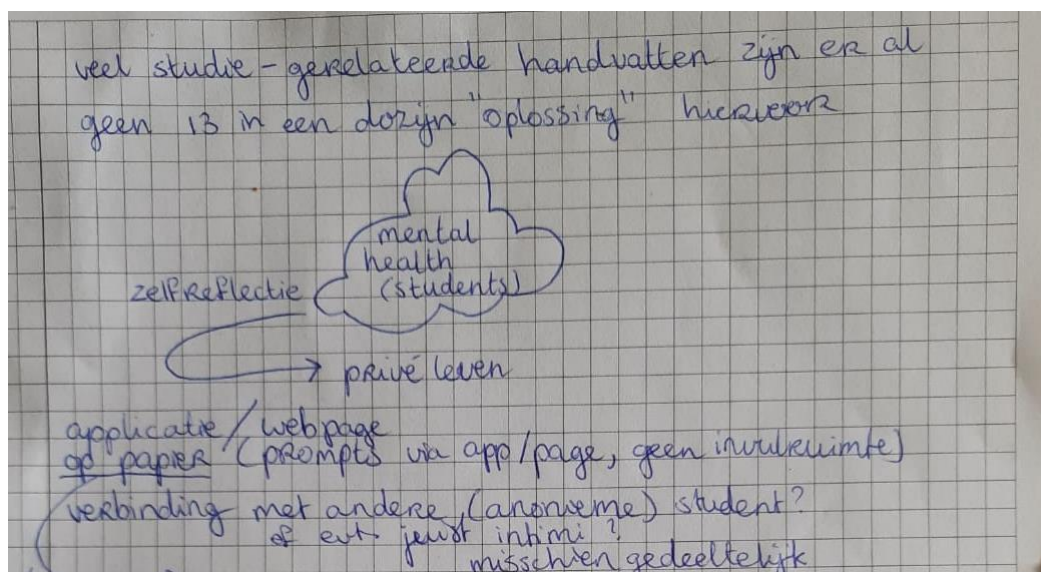 veel studie-gerelateerde handvatten zijn er al
geen 13 in een dozijn "oplossing" hiervoor
mental
health
(students)
zelfreflectie
privé leven
applicatie/webpage
op papier (prompts via app/page, geen invulruimte)
verbinding met andere (anonieme) student?
of evt. juist intimi?
misschien gedeeltelijk